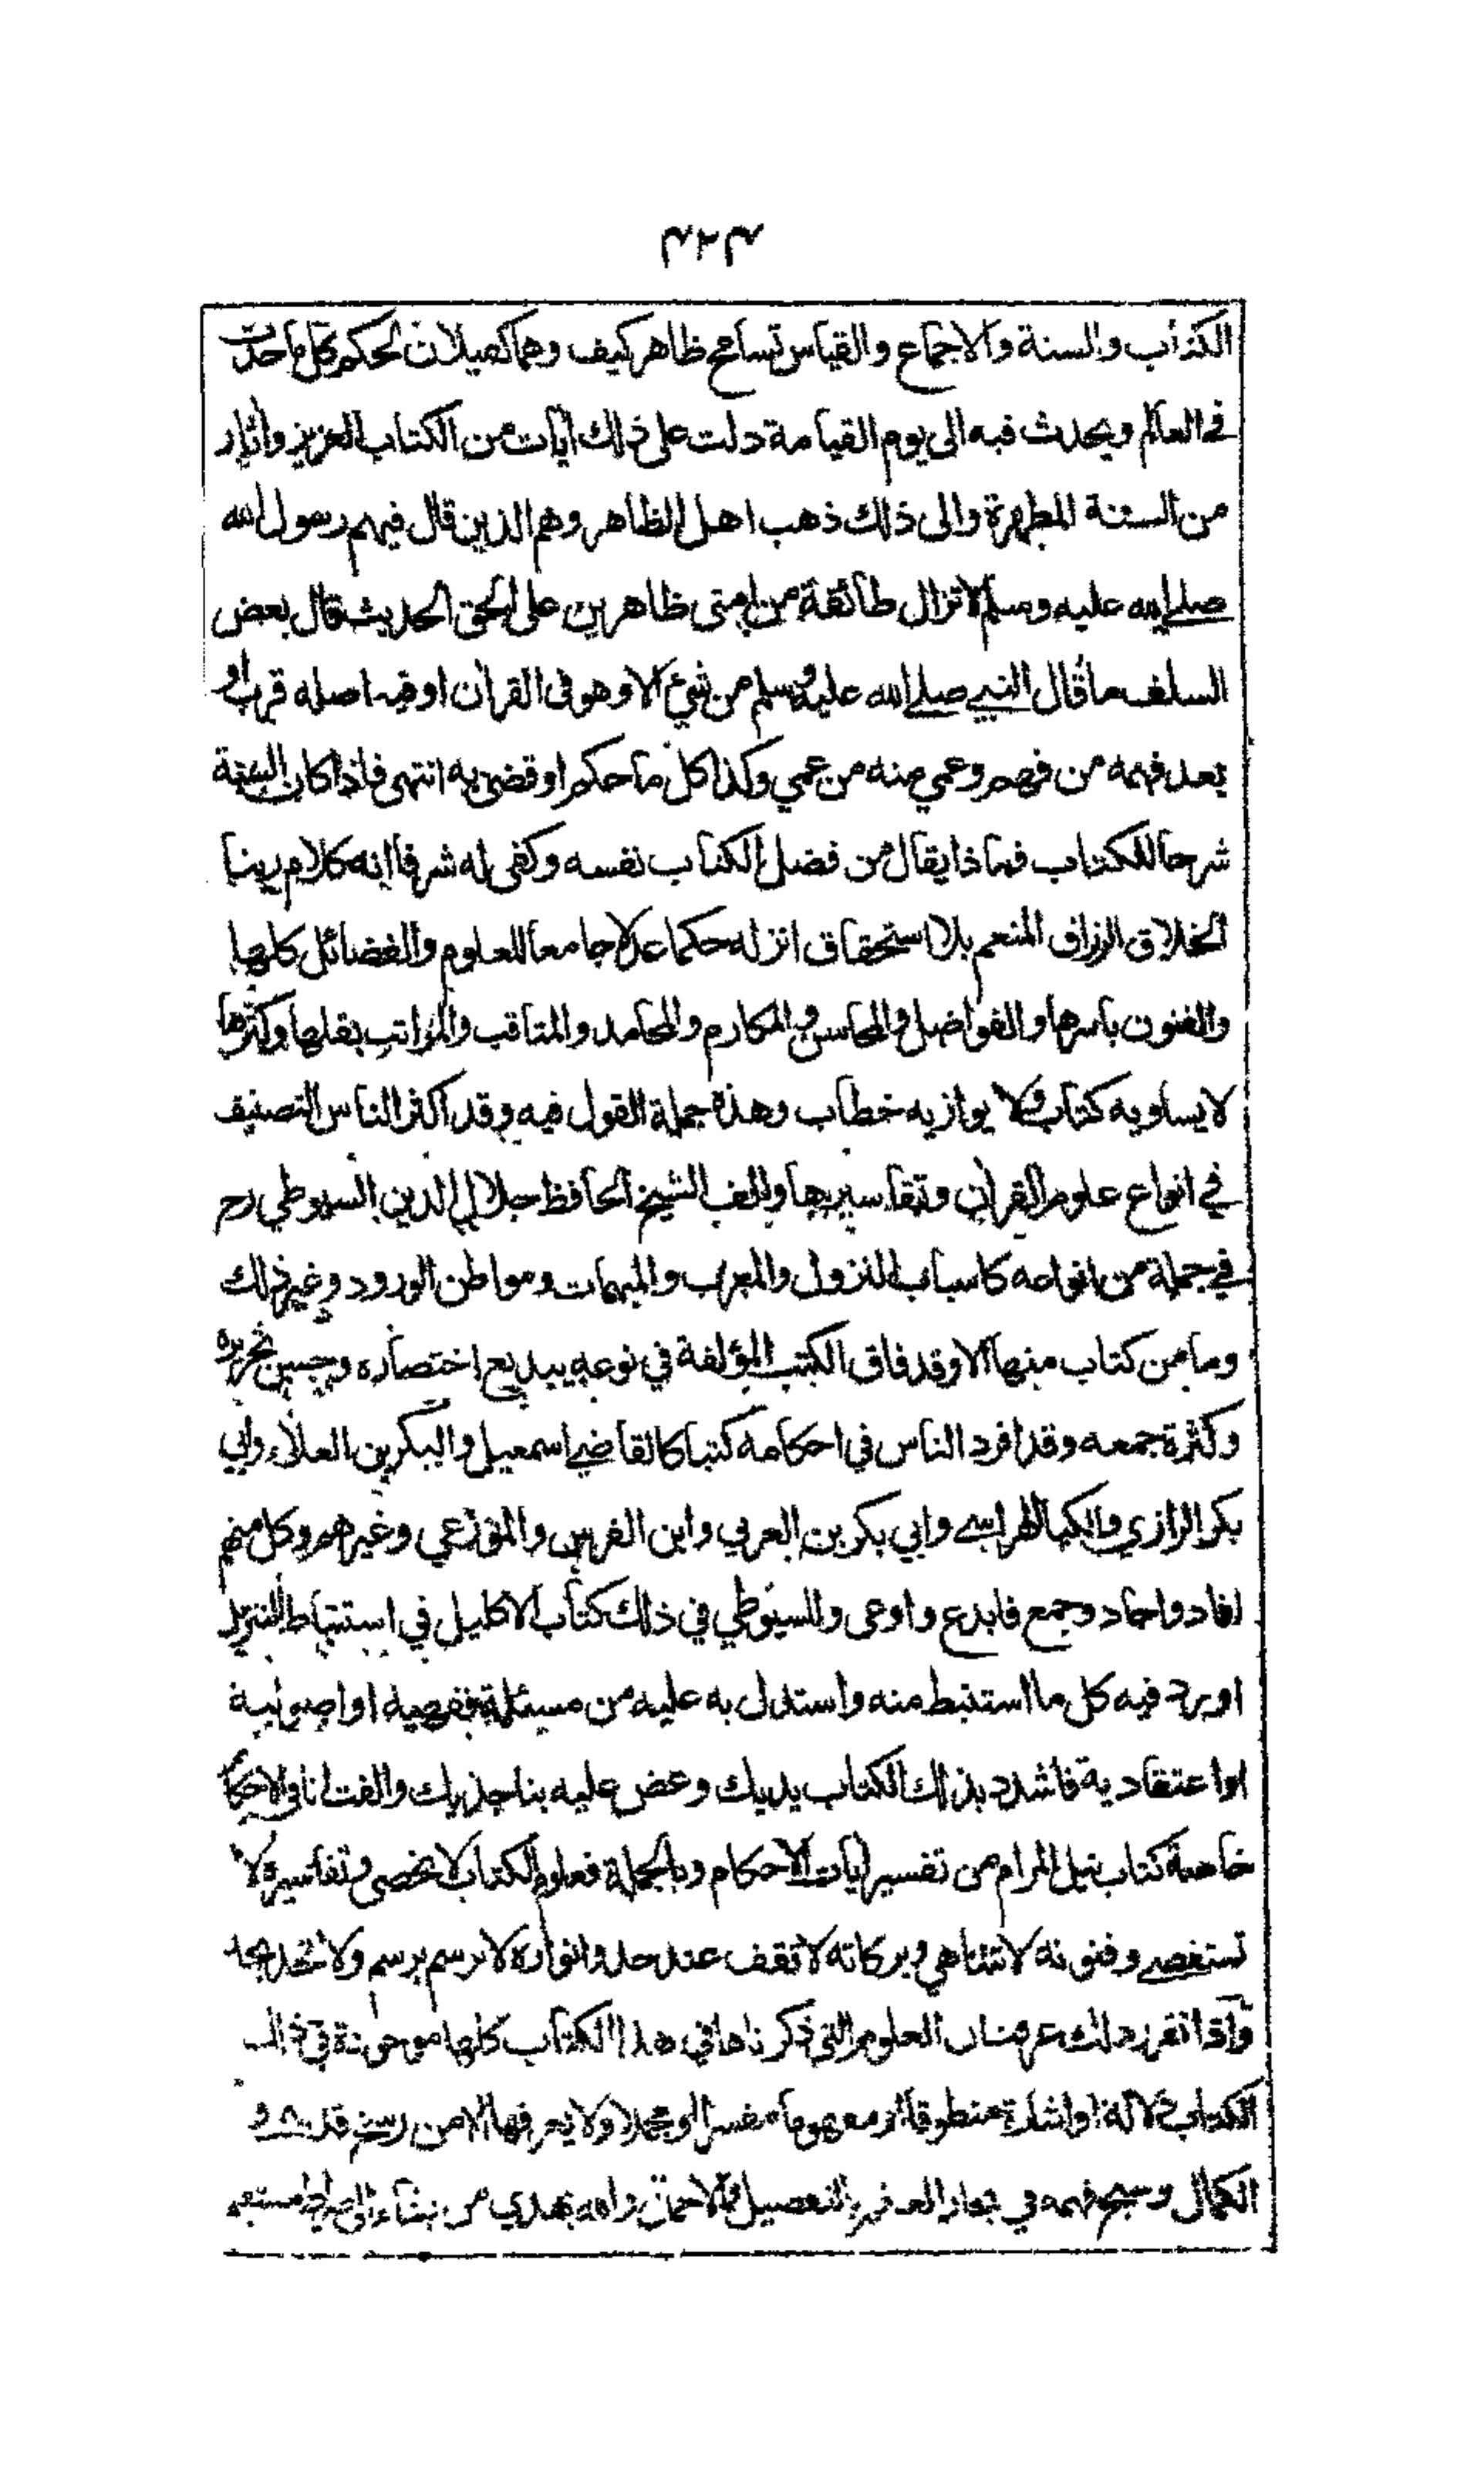 ٤٢٣
الكتاب والسنة والاجماع والقياس تسامح ظاهر كيف وهما كفيلان لحكم كل ما حدث
في العالم ويحدث فيه الى يوم القيامة دلت على ذلك ايات من الكتاب العزيز واثار
من السنة المطهرة والى ذلك ذهب اهل الظاهر وهم الذين قال فيهم رسول الله
صلى الله عليه وسلم لا تزال طائفة من امتى ظاهرين على الحق الحديث قال بعض
السلف ما قال النبي صلى الله عليه وسلم من شيء الا وهو في القران او فيه اصله قرب او
بعد فهمه من فهمه وعمي منه من عمي وكذا كل ما حكم او قضى به انتهى فاذا كان السنة
شرحا للكتاب فما ذا يقال من فضل الكتاب نفسه وكفى له شرفا انه كلام ربنا
الخلاق الرزاق المنعم بلا استحقاق انزله حكما عدلا جامعا للعلوم والفضائل كلها
والفنون باسرها والفواضل والمحاسن والمكارم والمحامد والمناقب والمراتب بقلها وكثرها
لا يساويه كتاب ولا يوازيه خطاب وهذه جملة القول فيه وقد اكثر الناس التصنيف
في انواع علوم القران وتفاسيرها والف الشيخ الحافظ جلال الدين السيوطي رح
في جملة من انواعه كاسباب النزول والمعرب والمبهمات ومواطن الورود وغير ذلك
وما من كتاب منها الا وقد فاق الكتب المؤلفة في نوعه ببديع اختصاره وحسن تحريره
وكثرة جمعه وقد افرد الناس في احكامه كتبا كالقاضي اسمعيل والبكر بن العلاء وابي
بكر الرازي والكيا الهراسي وابي بكر بن العربي وابن الفرس والموزعي وغيرهم وكل منهم
افاد واجاد وجمع فابدع واوعى وللسيوطي في ذلك كتاب الاكليل في استنباط التنزيل
اورد فيه كل ما استنبط منه واستدل به عليه من مسئلة فقهية او اصولية
او اعتقادية فاشدد بذلك الكتاب يديك وعض عليه بناجذيك والفت انا في الاحكا
خاصة كتاب نيل المرام من تفسير ايات الاحكام وبالجملة فعلوم الكتاب لا تحصى وتفاسيره لا
تستقصى وفنونه لا تتناهى وبركاته لا تقف عند حد وانواره لا ترسم برسم ولا تحد بحد
واذا تقرر ذلك عرفت ان العلوم التي ذكرناها في هذا الكتاب كلها موجودة في ذلك
الكتاب دلالة او اشارة منطوقا او مفهوما مفسرا او مجملا ولا يعرفها الا من رسخ قدمه في
الكمال وسبح فهمه في بحار العلم بالتفصيل والاجمال والله يهدي من يشاء الى صراط مستقيم